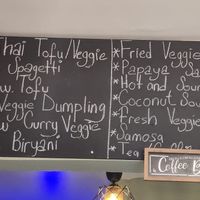 Thai Tofu/Veggie
Spagetti
w. Tofu
Veggie Dumpling
w Curry Veggie
Biryani
*Fried Veggie
*Papaya Sa
*Hot and Sour
*Coconut Sou
*Fresh Veggie
*Samosa
*Tea/Coffee
Coffee B